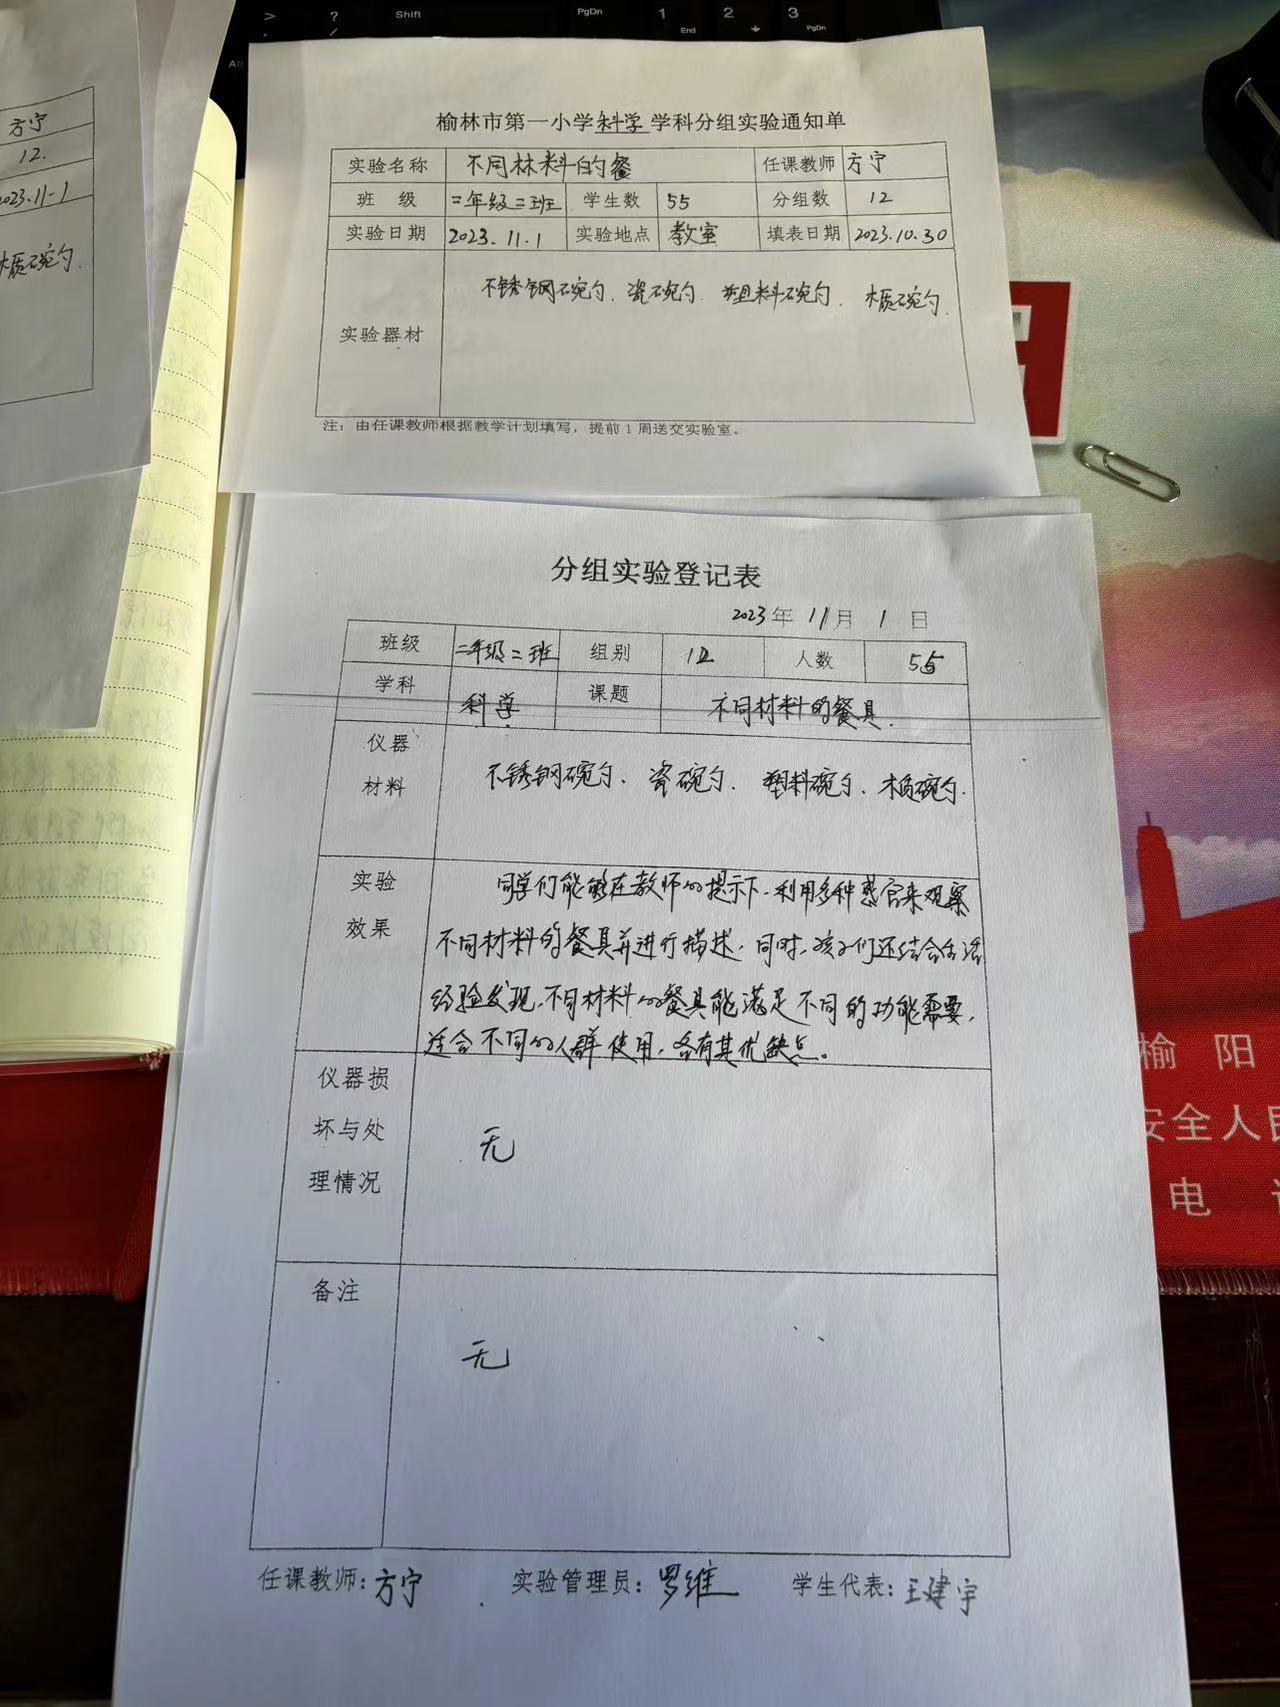 > ? Shift PgDn 1 2 3
/ End PgDn
Alt
方宁
12.
2023.11-1
木质碗勺.
榆林市第一小学科学学科分组实验通知单
实验名称 不同材料的餐 任课教师 方宁
班 级 二年级二班 学生数 55 分组数 12
实验日期 2023.11.1 实验地点 教室 填表日期 2023.10.30
不锈钢碗勺、瓷碗勺、塑料碗勺、木质碗勺.
实验器材
注：由任课教师根据教学计划填写，提前1周送交实验室。
分组实验登记表
2023年 11月 1日
班级 二年级二班 组别 12 人数 55
学科 科学 课题 不同材料的餐具.
仪器
材料 不锈钢碗勺、瓷碗勺、塑料碗勺、木质碗勺.
实验
效果
同学们能够在教师的提示下，利用多种感官来观察
不同材料的餐具并进行描述，同时，孩子们还结合生活
经验发现，不同材料的餐具能满足不同的功能需要，
适合不同的人群使用，各有其优缺点。
仪器损
坏与处
理情况
无
备注
无
任课教师：方宁 实验管理员：罗维 学生代表：王建宇
榆阳
安全人民
电